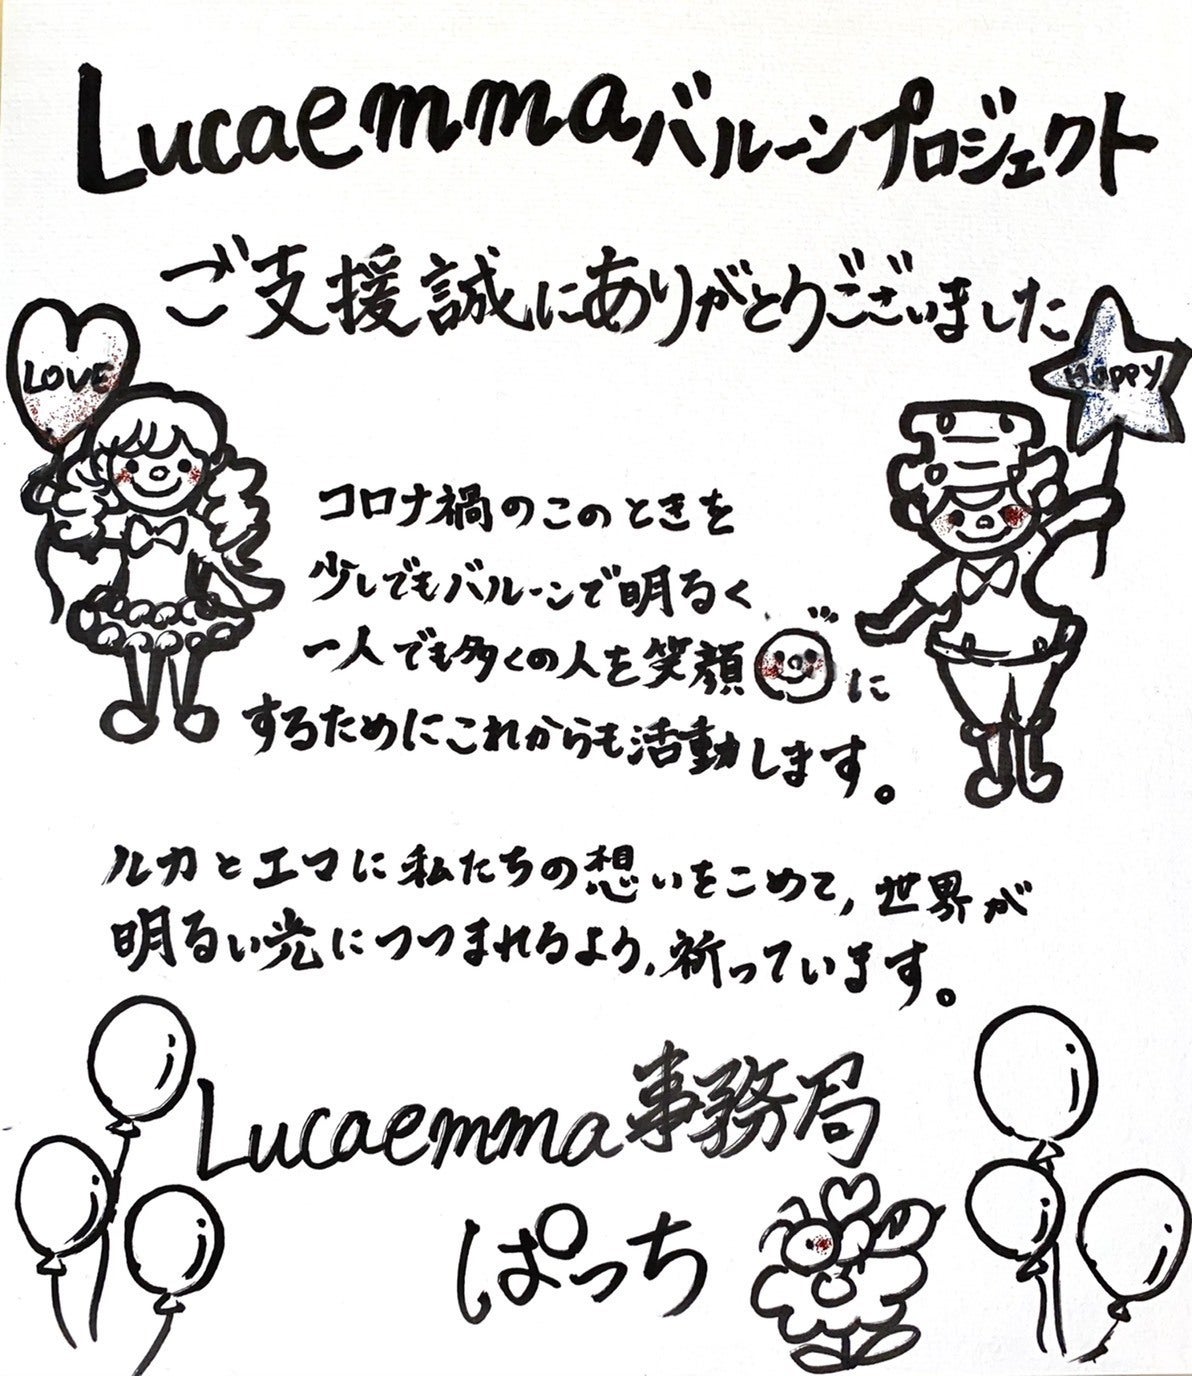 Lucaemmaバルーンプロジェクト
ご支援誠にありがとうございました
LOVE
Happy
コロナ禍のこのときを
少しでもバルーンで明るく
一人でも多くの人を笑顔に
するためにこれからも活動します。
ルカとエマに私たちの想いをこめて,世界が
明るい光につつまれるよう,祈っています。
Lucaemma事務局
ぱっち